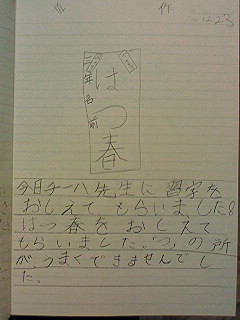 はつ春
年名前
今日チーハ先生に習字を
おしえてもらいました。
はつ春をおしえて
もらいました。「つ」の所
が、うまくできませんでし
た。